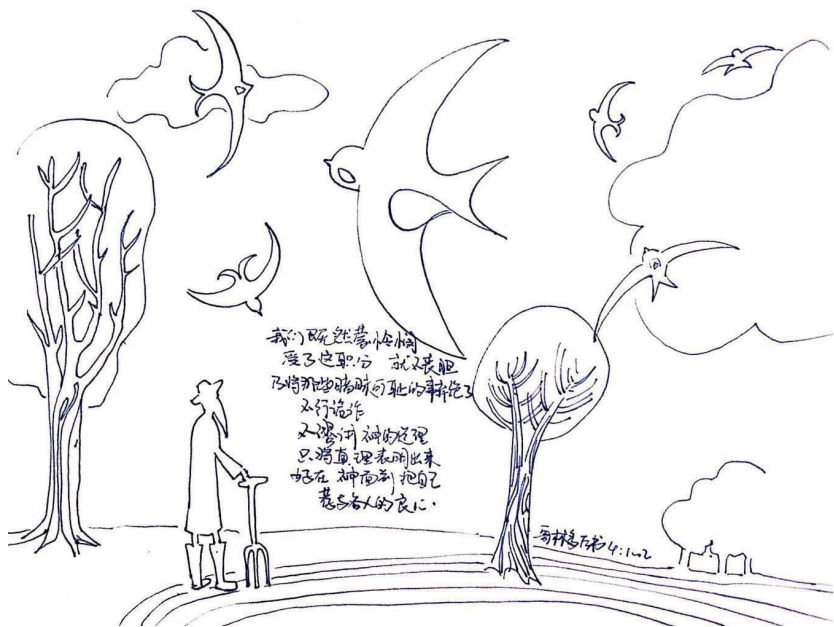 我们既然蒙怜悯
受了这职分 就不丧胆
乃将那些暗昧可耻的事弃绝了
不行诡诈
不谬讲 神的道理
只将真理表明出来
好在 神面前把自己
荐与各人的良心.
哥林多后书4:1-2